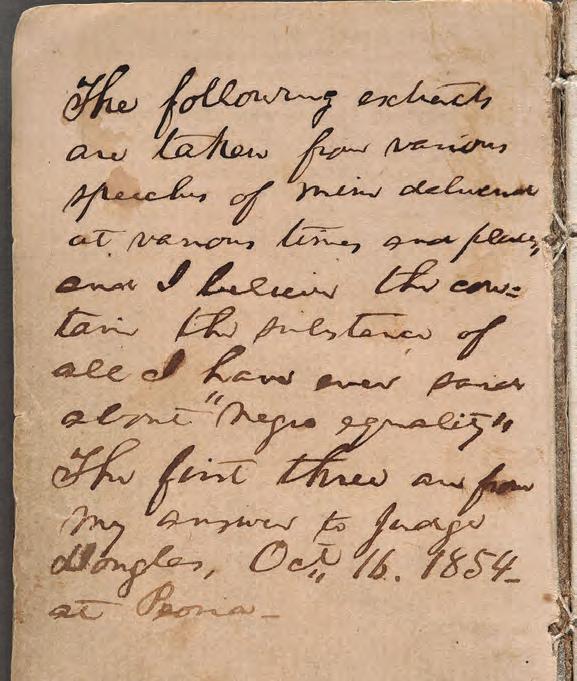 The following extracts
are taken from various
speeches of mine delivered
at various times and places,
and I believe the con=
tain the substance of
all I have ever said
about "Negro equality"
The first three are from
my answer to Judge
Douglas, Oct. 16. 1854-
at Peoria-